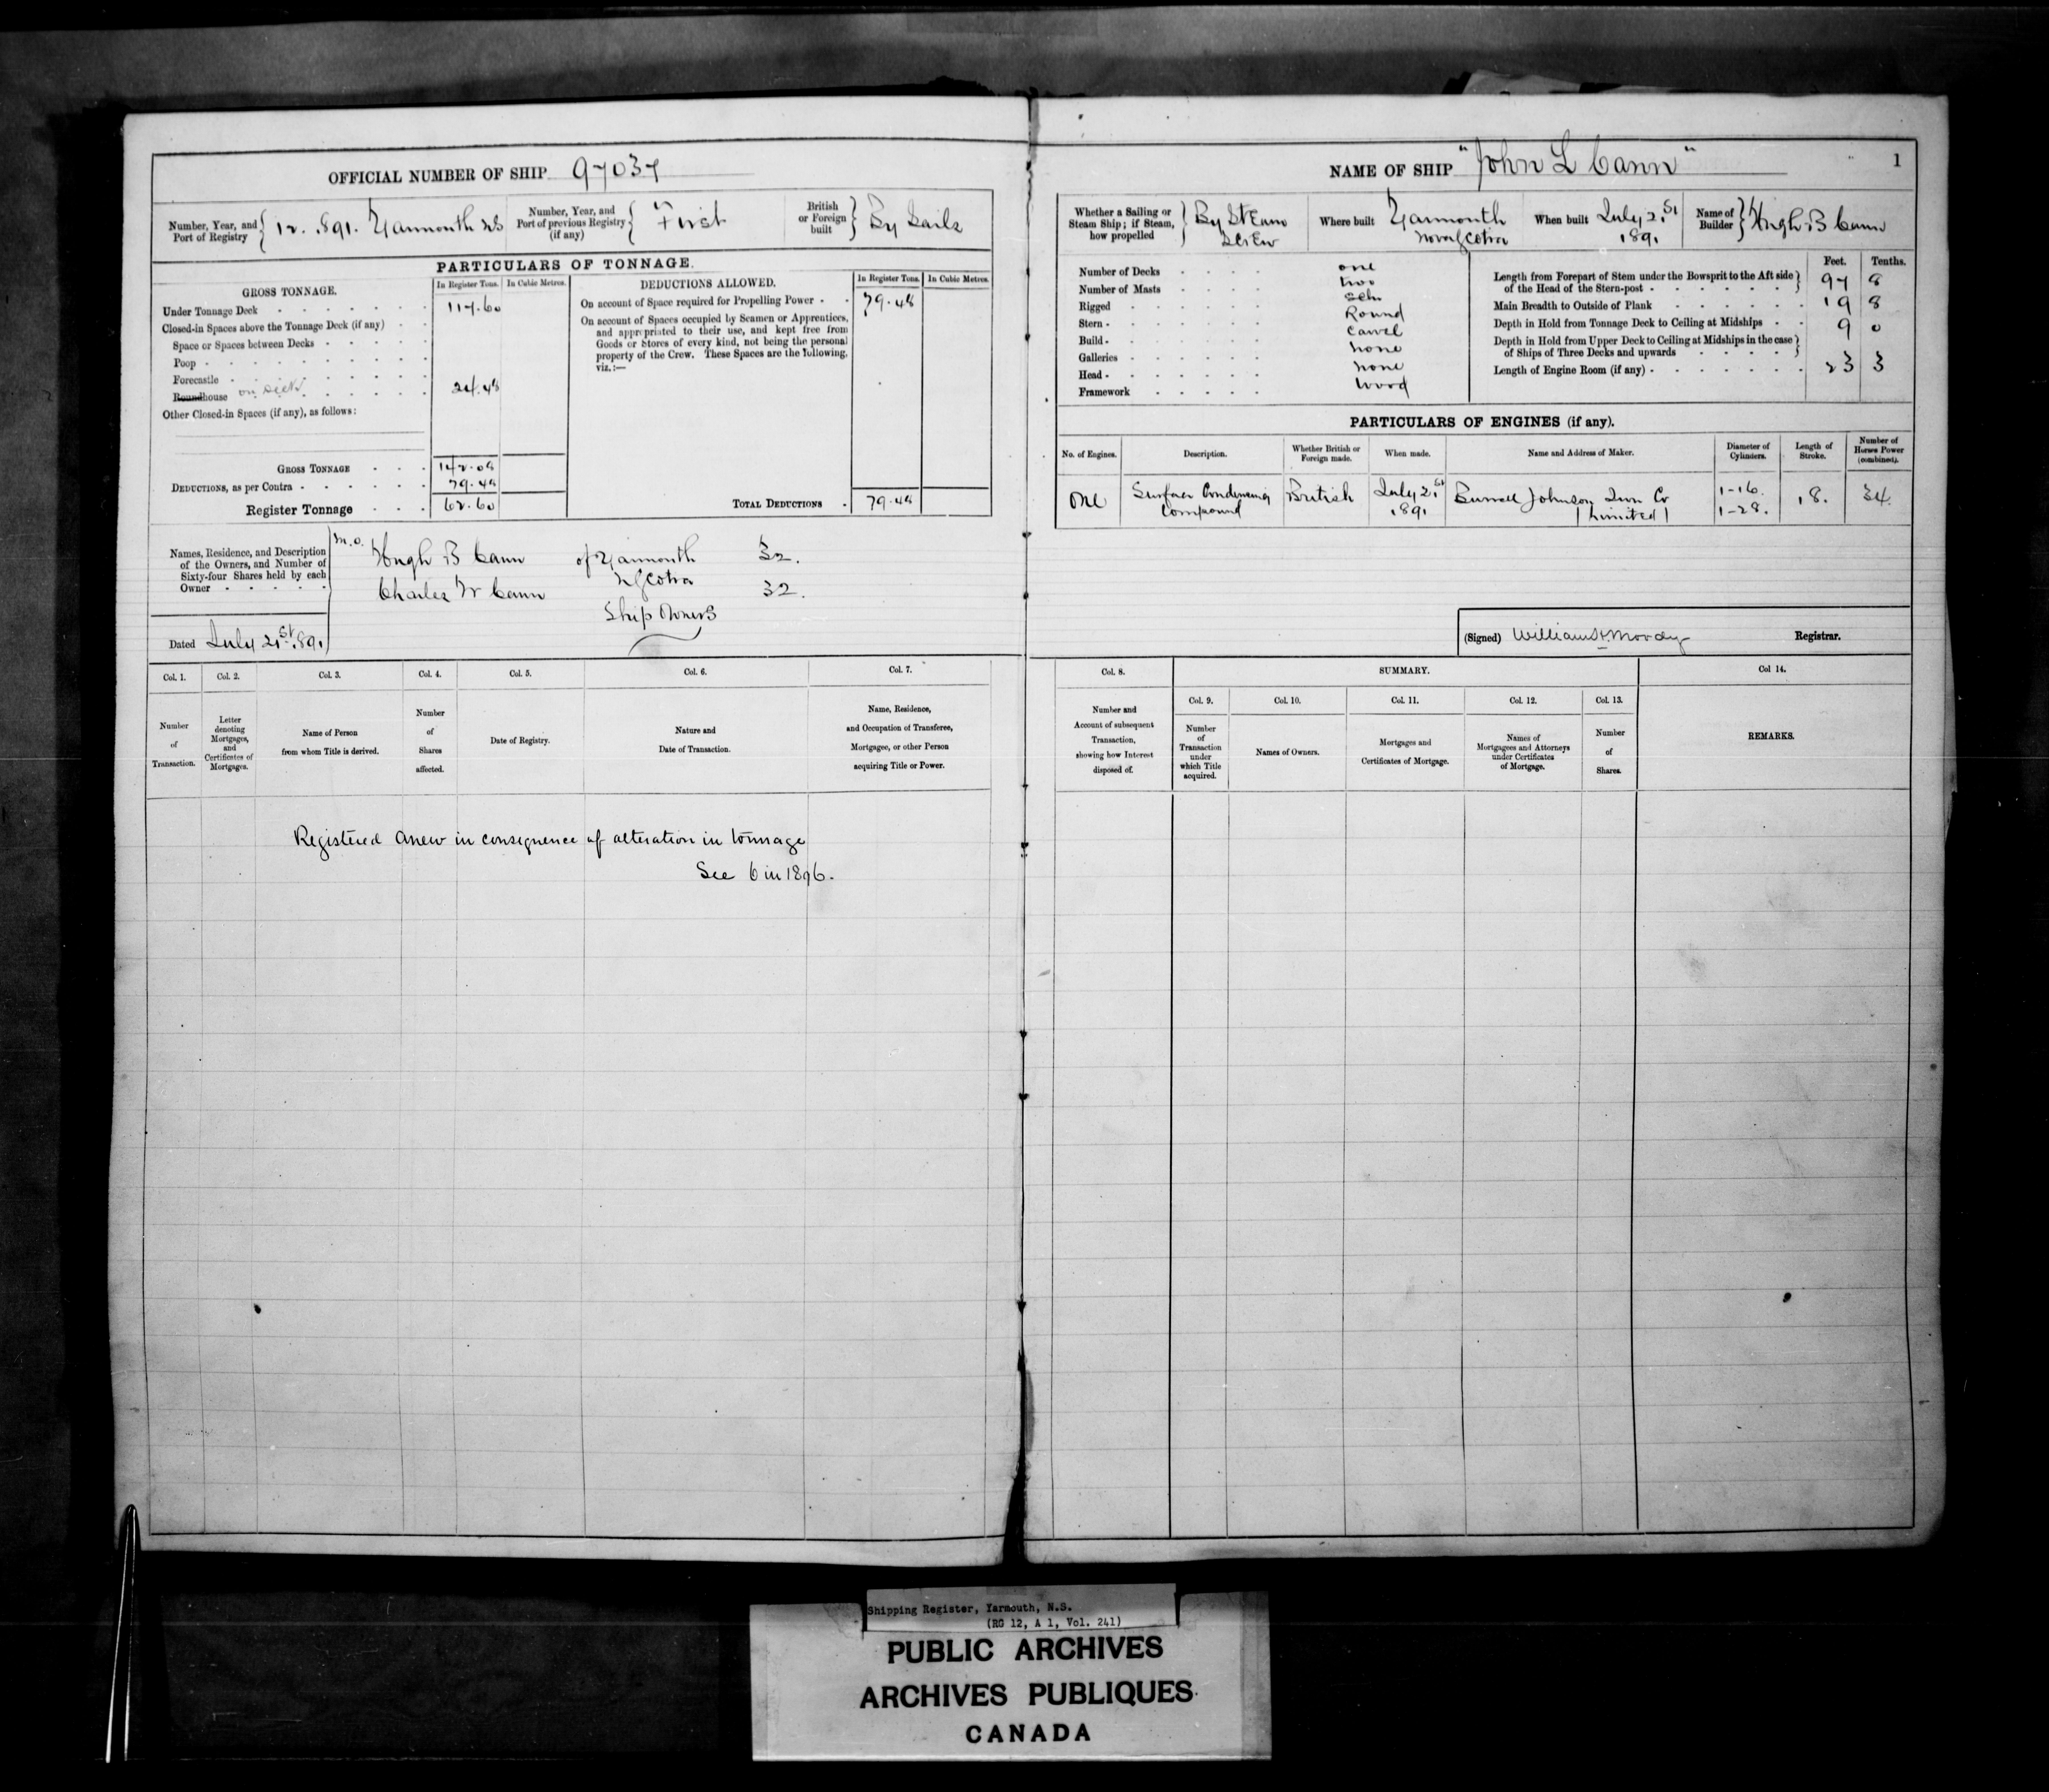 OFFICIAL NUMBER OF SHIP 97037
Number, Year, and Port of Registry { 12. 1891. Yarmouth NS
Number, Year, and Port of previous Registry (if any) { "First
British or Foreign built } By Sails
PARTICULARS OF TONNAGE.
GROSS TONNAGE. In Register Tons. In Cubic Metres.
Under Tonnage Deck 117.60
Closed-in Spaces above the Tonnage Deck (if any)
Space or Spaces between Decks
Poop
Forecastle
Roundhouse on deck 24.48
Other Closed-in Spaces (if any), as follows:
GROSS TONNAGE 142.08
DEDUCTIONS, as per Contra 79.48
Register Tonnage 62.60
DEDUCTIONS ALLOWED. In Register Tons. In Cubic Metres.
On account of Space required for Propelling Power 79.48
On account of Spaces occupied by Seamen or Apprentices,
and appropriated to their use, and kept free from
Goods or Stores of every kind, not being the personal
property of the Crew. These Spaces are the following,
viz.:—
TOTAL DEDUCTIONS 79.48
Names, Residence, and Description
of the Owners, and Number of
Sixty-four Shares held by each
Owner
M.O.
Hugh B Cann of Yarmouth 32.
NScotia
Charles W Cann 32.
Ship Owners
Dated July 21st 1891
Col. 1. Col. 2. Col. 3. Col. 4. Col. 5. Col. 6. Col. 7.
Number of Transaction.
Letter denoting Mortgages, and Certificates of Mortgages.
Name of Person from whom Title is derived.
Number of Shares affected.
Date of Registry.
Nature and Date of Transaction.
Name, Residence, and Occupation of Transferee, Mortgagee, or other Person acquiring Title or Power.
Registered anew in consequence of alteration in tonnage
See 6 in 1896.
NAME OF SHIP "John L Cann"
1
Whether a Sailing or Steam Ship; if Steam, how propelled } By Steam Screw
Where built Yarmouth Nova Scotia
When built July 21st 1891
Name of Builder } Hugh B Cann
Number of Decks one
Number of Masts two
Rigged Sch
Stern Round
Build Carvel
Galleries none
Head none
Framework Wood
Feet. Tenths.
Length from Forepart of Stem under the Bowsprit to the Aft side of the Head of the Stern-post 97 8
Main Breadth to Outside of Plank 19 8
Depth in Hold from Tonnage Deck to Ceiling at Midships 9 0
Depth in Hold from Upper Deck to Ceiling at Midships in the case of Ships of Three Decks and upwards
Length of Engine Room (if any) 23 3
PARTICULARS OF ENGINES (if any).
No. of Engines. Description. Whether British or Foreign made. When made. Name and Address of Maker. Diameter of Cylinders. Length of Stroke. Number of Horses Power (combined).
One Surface Condensing British July 21st Burrell Johnson Iron Co 1-16. 18. 34
Compound 1891 (Limited) 1-28.
(Signed) William H Moody Registrar.
Col. 8. SUMMARY. Col 14.
Col. 9. Col. 10. Col. 11. Col. 12. Col. 13.
Number and Account of subsequent Transaction, showing how Interest disposed of.
Number of Transaction under which Title acquired.
Names of Owners.
Mortgages and Certificates of Mortgage.
Names of Mortgagees and Attorneys under Certificates of Mortgage.
Number of Shares.
REMARKS.
Shipping Register, Yarmouth, N.S.
(RG 12, A 1, Vol. 241)
PUBLIC ARCHIVES
ARCHIVES PUBLIQUES
CANADA